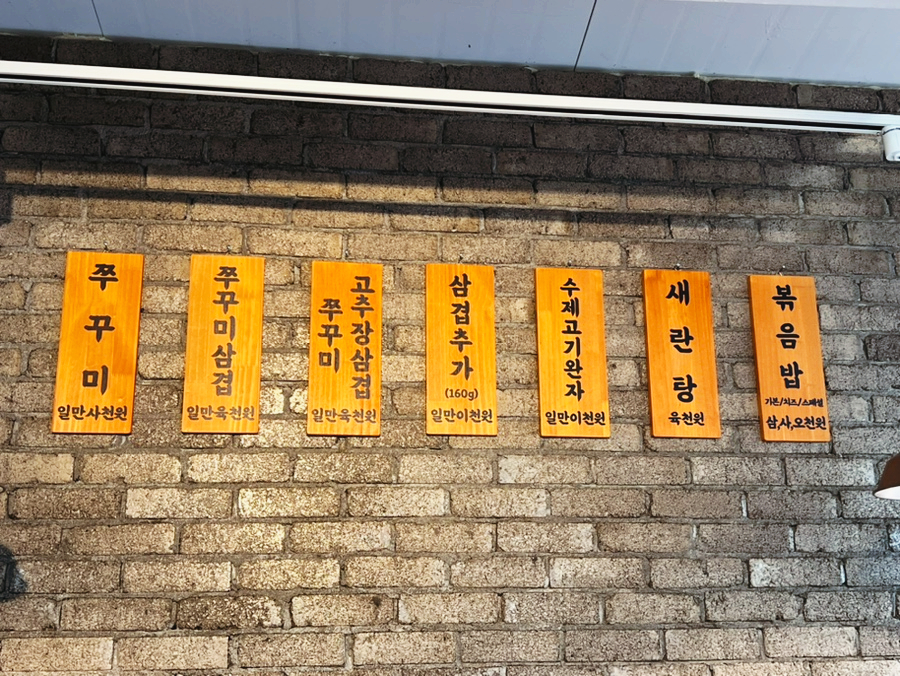 쭈꾸미
일만사천원
쭈꾸미삼겹
일만육천원
고추장삼겹
쭈꾸미
일만육천원
삼겹추가
(160g)
일만이천원
수제고기완자
일만이천원
새란탕
육천원
볶음밥
기본/치즈/스페셜
삼,사,오천원